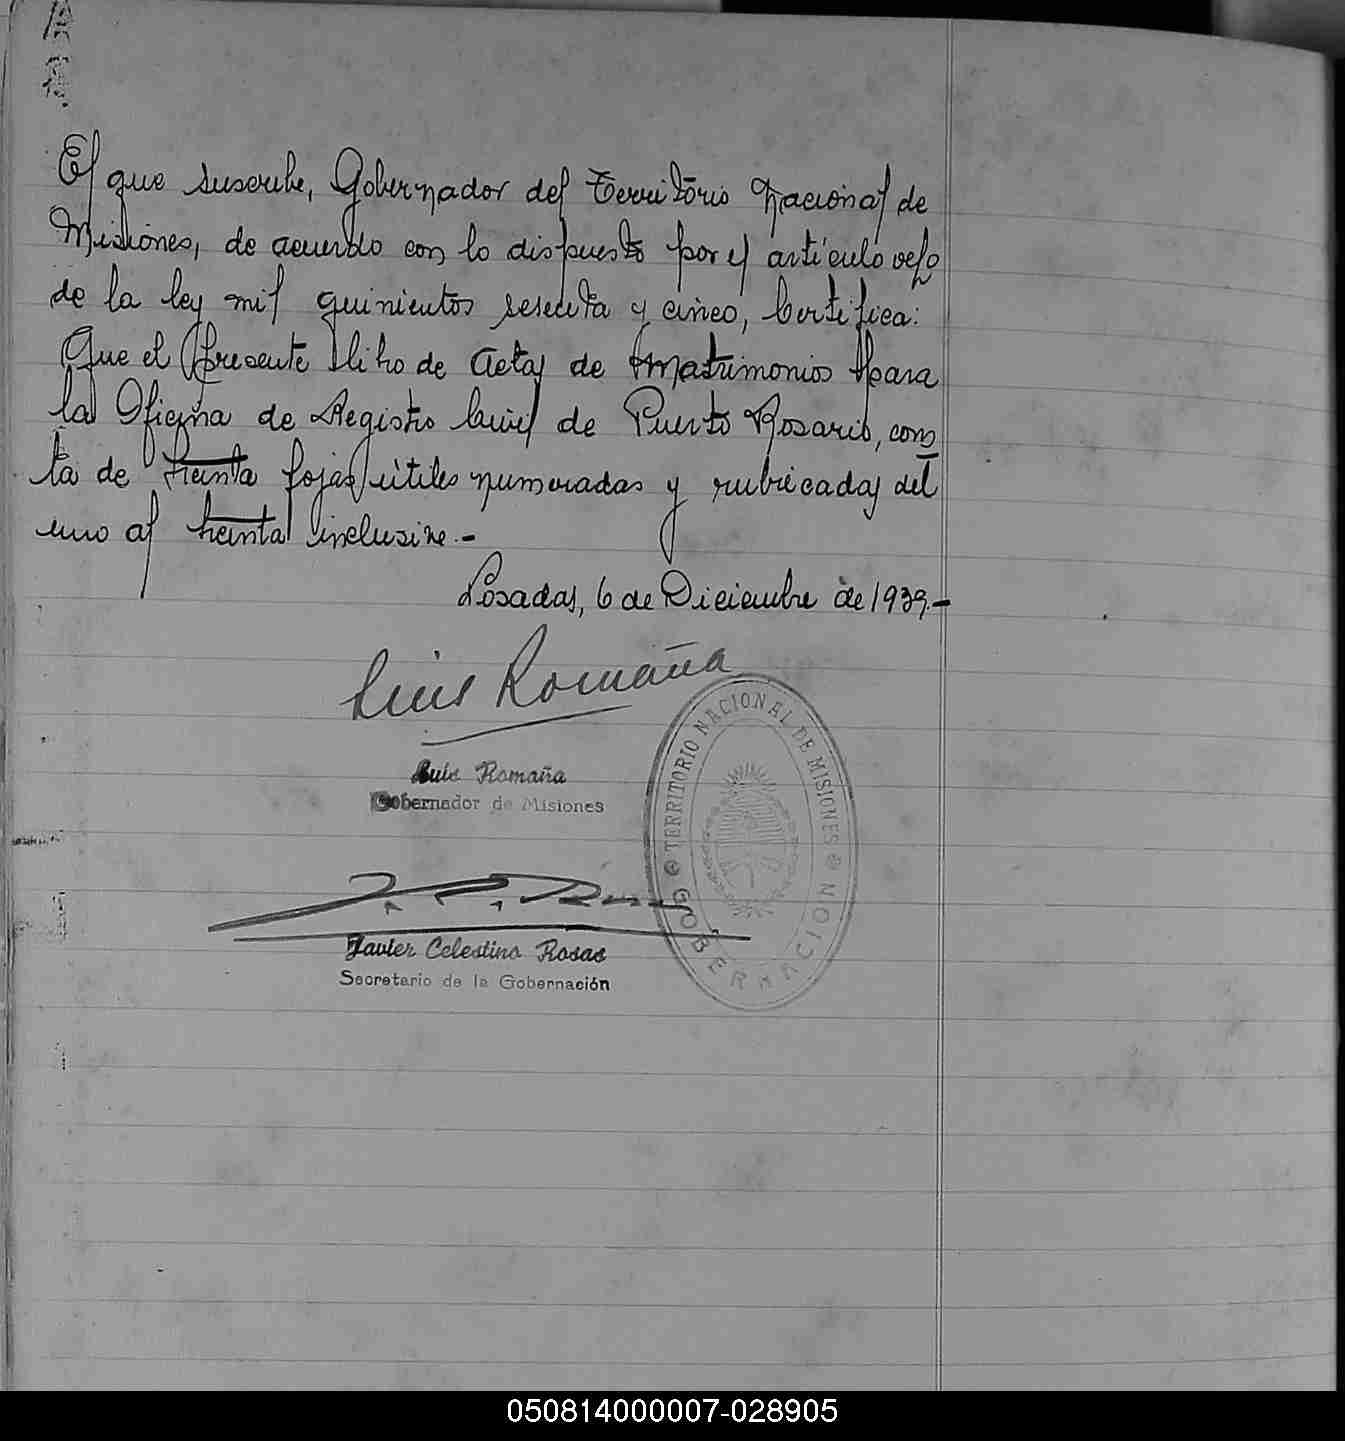 El que suscribe, Gobernador del Territorio Nacional de
Misiones, de acuerdo con lo dispuesto por el artículo ocho
de la ley mil quinientos sesenta y cinco, Certifica:
Que el presente libro de Actas de Matrimonios para
la Oficina de Registro Civil de Puerto Rosario, cons
ta de treinta fojas útiles numeradas y rubricadas del
uno al treinta inclusive.-
Posadas, 6 de Diciembre de 1939.-
Luis Romaña
Luis Romaña
Gobernador de Misiones
TERRITORIO NACIONAL DE MISIONES
GOBERNACION
Javier Celestino Rosas
Secretario de la Gobernación
050814000007-028905